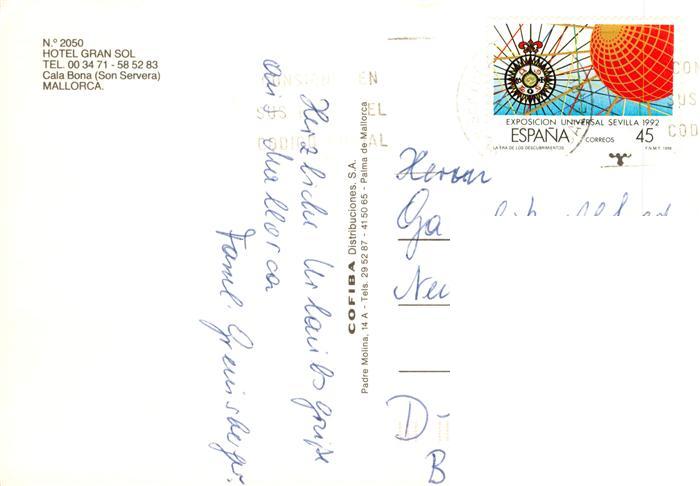 N.º 2050
HOTEL GRAN SOL
TEL. 00 34 71 - 58 52 83
Cala Bona (Son Servera)
MALLORCA.
EXPOSICION UNIVERSAL SEVILLA 1992
ESPAÑA CORREOS 45
LA ERA DE LOS DESCUBRIMIENTOS F.N.M.T. 1988
CONSIGNE EN
SUS EL
CODIGO AL
CON
SUS
COD
Herzliche Urlaubsgrüße
aus Mallorca
Faml.
COFIBA Distribuciones, S.A.
Padre Molina, 14 A - Tels. 29 52 87 - 41 50 65 - Palma de Mallorca
Herrn
Ga
Neu
D-
B